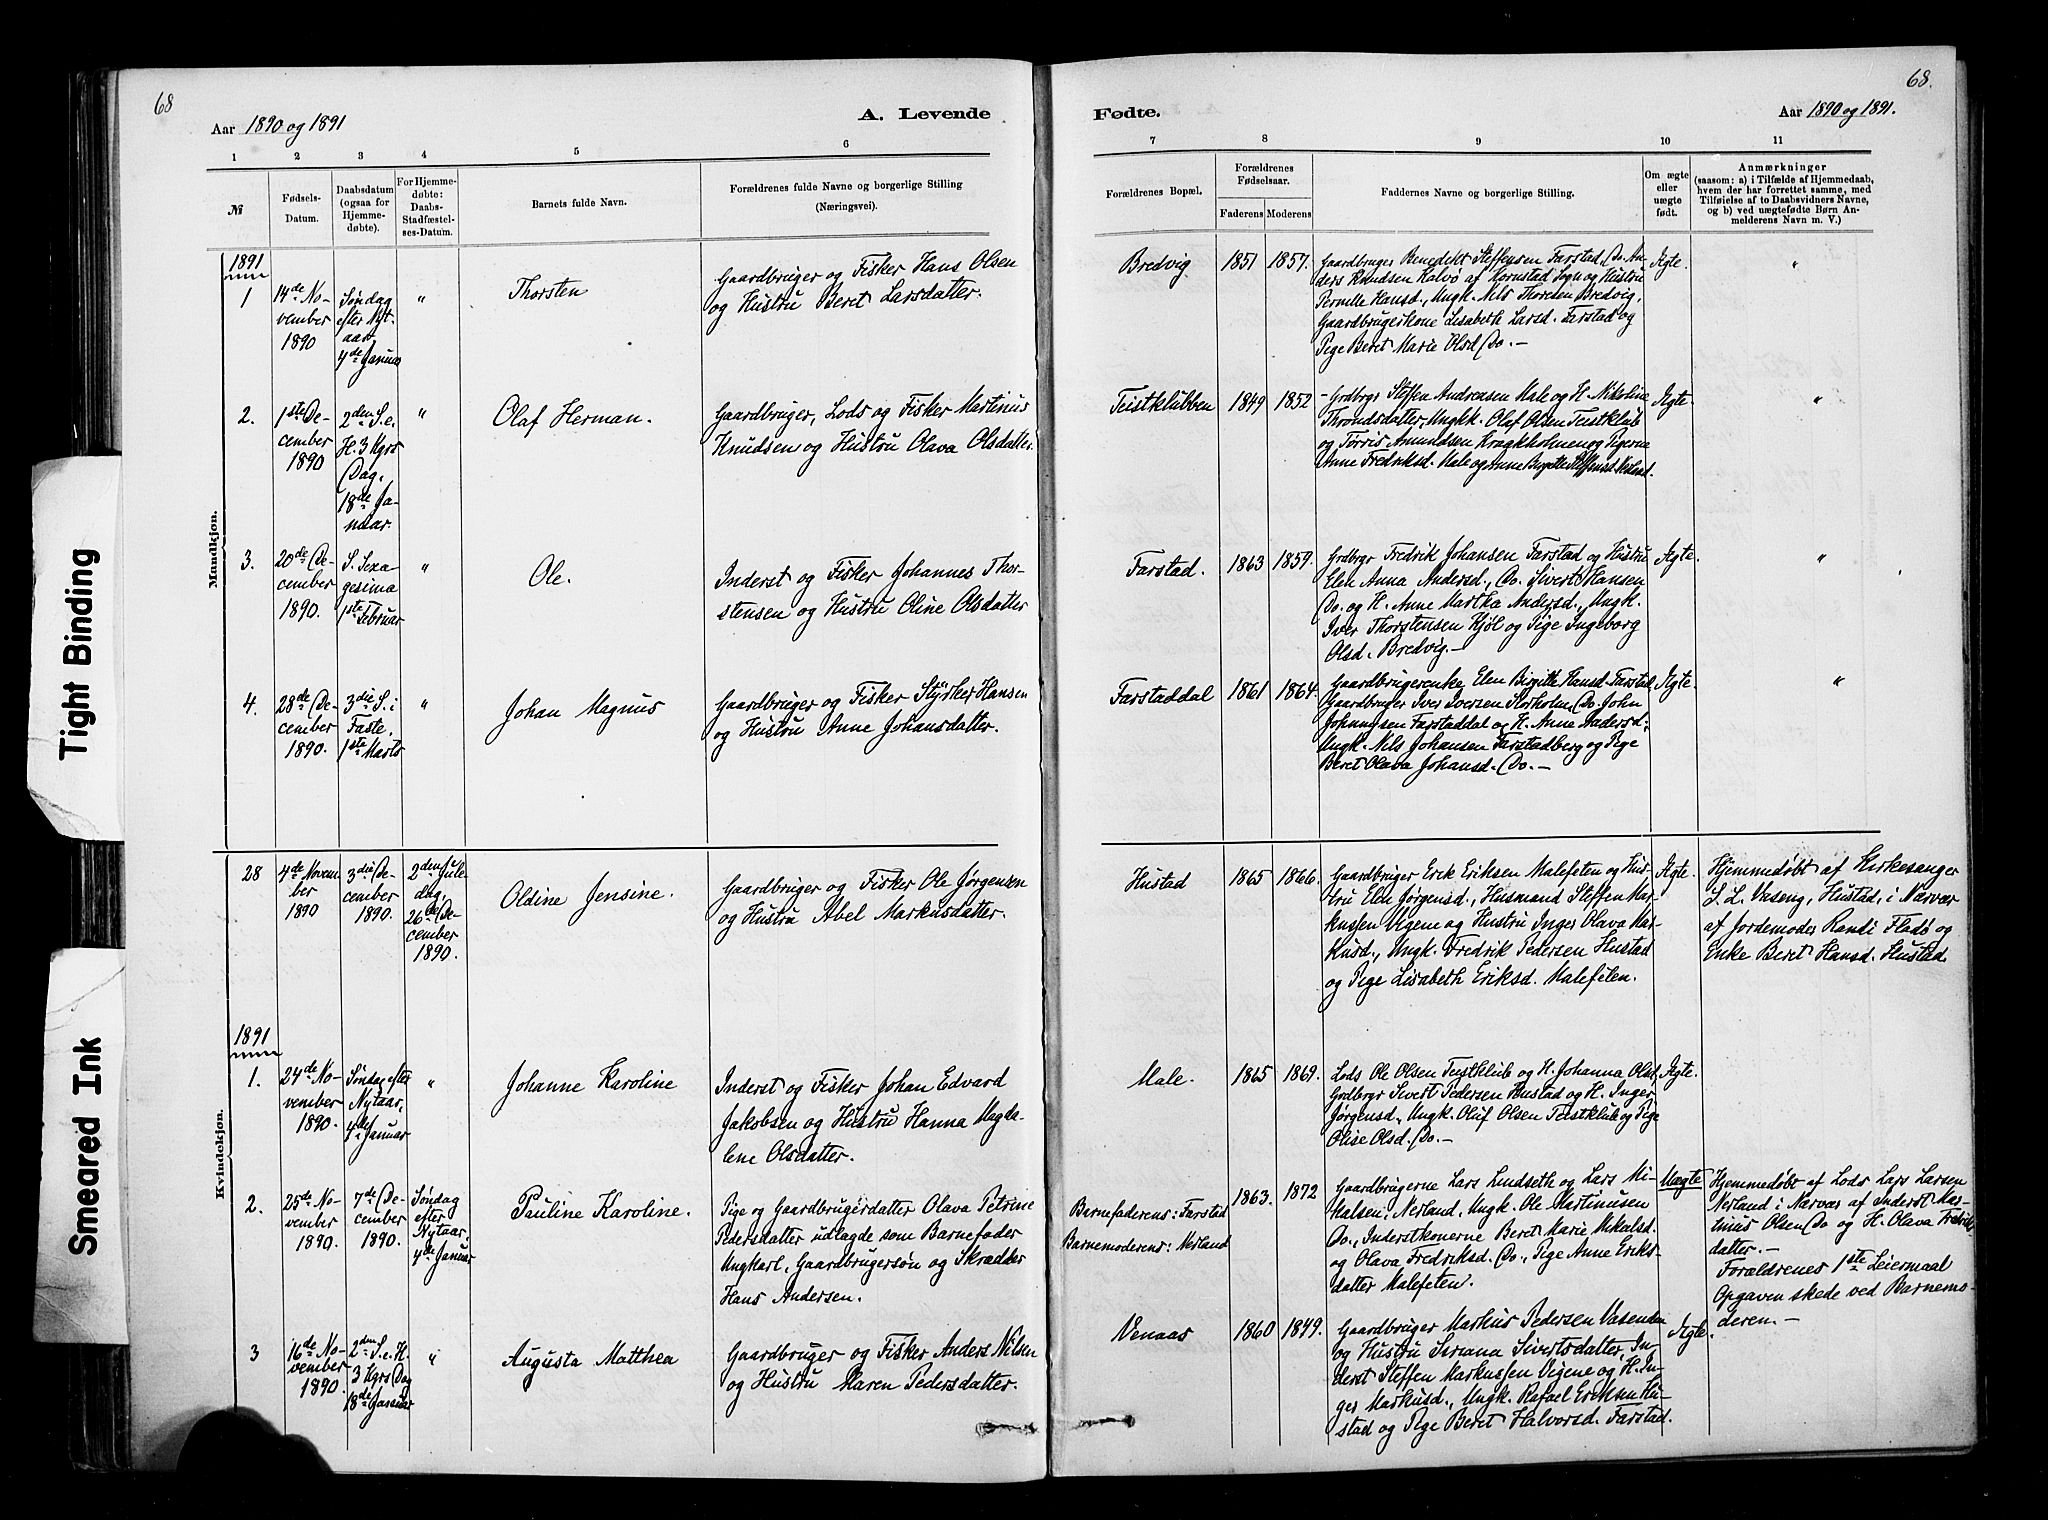 68
68.
Aar 1890 og 1891
A. Levende
Fødte.
Aar 1890 og 1891.
1 2 3 4 5 6
7 8 9 10 11
№
Fødsels-
Datum.
Daabsdatum
(ogsaa for
Hjemme-
døbte).
For Hjemme-
døbte:
Daabs-
Stadfæstel-
ses-Datum.
Barnets fulde Navn.
Forældrenes fulde Navne og borgerlige Stilling
(Næringsvei).
Forældrenes Bopæl.
Forældrenes
Fødselsaar.
Faderens
Moderens
Faddernes Navne og borgerlige Stilling.
Om ægte
eller
uægte
født.
Anmærkninger
(saasom: a) i Tilfælde af Hjemmedaab,
hvem der har forrettet samme, med
Tilføielse af to Daabsvidners Navne,
og b) ved uægtefødte Børn An-
melderens Navn m. V.)
Mandkjøn.
1891
1
14de No-
vember
1890
Søndag
efter Nyt-
aar,
4de Januar
"
Thorsten
Gaardbruger og Fisker Hans Olsen
og Hustru Beret Larsdatter.
Bredvig
1851
1857.
Gaardbruger Benedikt Steffensen Farstad, Do. An-
ders Knudsen Kalvø af Kornstad Sogn og Hustru
Pernille Hansd., Ungk. Nils Thoresen Bredvig,
Gaardbrugerkone Lisabeth Larsd. Farstad og
Pige Beret Marie Olsd. Do. –
Ægte.
"
2.
1ste De-
cember
1890
2den S. e.
H. 3 Kgrs
Dag,
18de Ja-
nuar.
"
Olaf Herman.
Gaardbruger, Lods og Fisker Martinus
Knudsen og Hustru Olava Olsdatter.
Teistklubben
1849
1852
Grdbrgr Steffen Andreasen Male og H. Nikoline
Throndsdatter, Ungk. Olaf Olsen Teistklub
og Tørris Amundsen Kraakholmen og Pigerne
Anne Fredriksd. Male og Anne Birgitte Steffensd. Nerland.
Ægte
"
3.
20de De-
cember
1890.
S. Sexa-
gesima
1ste Februar
"
Ole.
Inderst og Fisker Johannes Thor-
stensen og Hustru Oline Olsdatter
Farstad.
1863
1859.
Grdbrgr Fredrik Johansen Farstad og Hustru
Elen Anna Andersd., Do. Sivert Hansen
Do. og H. Anne Martha Andersd., Ungk.
Iver Thorstensen Kjøl og Pige Ingeborg
Olsd. Bredvig. –
Ægte.
"
4.
28de De-
cember
1890.
3die S. i
Faste,
1ste Marts
"
Johan Magnus
Gaardbruger og Fisker Styrker Hansen
og Hustru Anne Johansdatter.
Farstaddal
1861
1864.
Gaardbrugerenke Elen Birgitte Hansd. Farstad,
Gaardbruger Iver Iversen Storholm, Do. John
Johannesen Farstaddal og H. Anna Andersd.
Ungk. Nils Johansen Farstadberg og Pige
Beret Olava Johansd. Do. –
Ægte.
"
Kvindekjøn.
28
4de Novem-
ber
1890
3die De-
cember
1890.
2den Jule-
dag,
26de De-
cember
1890.
Oldine Jensine.
Gaardbruger og Fisker Ole Jørgensen
og Hustru Abel Markusdatter.
Hustad
1865
1866.
Gaardbruger Erik Eriksen Malefeten og Hus-
tru Elen Jørgensd., Husmand Steffen Mar-
kussen Vigene og Hustru Inger Olava Mar-
kusd., Ungk. Fredrik Pedersen Hustad
og Pige Lisabeth Eriksd. Malefeten.
Ægte.
Hjemmedøbt af Kirkesanger
S. L. Vaseng, Hustad, i Nærvær
af Jordemoder Randi Fladø og
Enke Beret Hansd. Hustad.
1891
1.
24de No-
vember
1890.
Søndag efter
Nytaar,
4de Januar
"
Johanne Karoline
Inderst og Fisker Johan Edvard
Jakobsen og Hustru Hanna Magda-
lene Olsdatter.
Male.
1865
1869.
Lods Ole Olsen Teistklub og H. Johanna Olsd.,
Grdbrgr Sivert Pedersen Hustad og H. Inger
Jørgensd., Ungk. Oluf Olsen Teistklub og Pige
Olise Olsd. Do. –
Ægte.
2.
25de No-
vember
1890.
7de De-
cember
1890.
Søndag
efter
Nytaar,
4de Januar
Pauline Karoline.
Pige og Gaardbrugerdatter Olava Petrine
Pedersdatter udlagde som Barnefader
Ungkarl, Gaardbrugersøn og Skrædder
Hans Andersen.
Barnefaderens: Farstad
Barnemoderens: Nerland
1863.
1872
Gaardbrugerne Lars Lindseth og Lars Mi-
kalsen, Nerland, Ungk. Ole Martinusen
Do., Inderstkonerne Beret Marie Mikalsd.
og Olava Fredriksd. Do., Pige Anne Eriks-
datter Malefeten.
Uægte
Hjemmedøbt af Lods Lars Larsen
Nerland i Nærvær af Inderst Mar-
tinus Olsen Do og H. Olava Fredriks-
datter. –
Forældrenes 1ste Leiermaal
Opgaven skede ved Barnemo-
deren. –
3
16de No-
vember
1890.
2den S. e. H.
3 Kgrs Dag
18de Januar
"
Augusta Matthea
Gaardbruger og Fisker Anders Nilsen
og Hustru Maren Pedersdatter.
Venaas
1860
1849.
Gaardbruger Markus Pedersen Vasenden
og Hustru Siriana Sivertsdatter, In-
derst Steffen Markussen Vigene og H. In-
ger Markusd., Ungk. Rafael Eriksen Hu-
stad og Pige Beret Halvorsd. Farstad.
Ægte.
Tight Binding
Smeared Ink